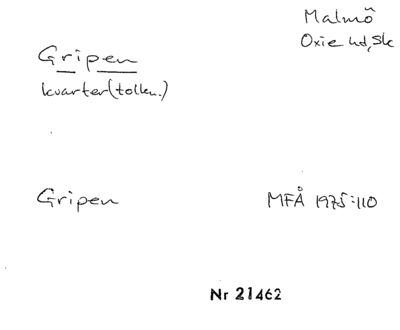 Malmö
Oxie hd, Sk
Gripen
kvarter (tolkn.)
Gripen
MFÅ 1975:110
Nr 21462